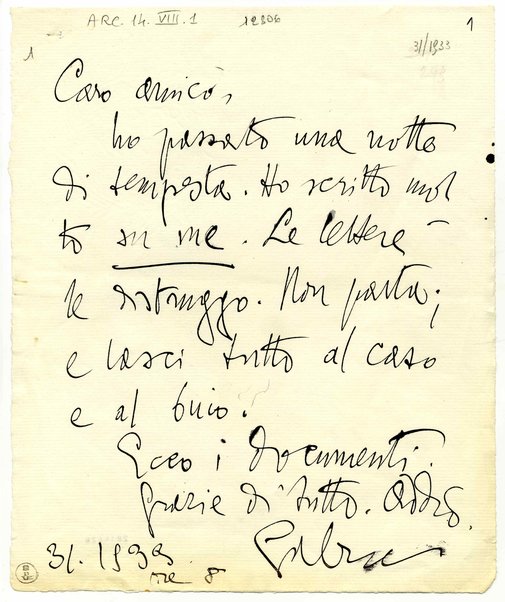 ARC. 14. VIII. 1 12806 1
31/1933
1
Caro amico,
ho passato una notte
di tempesta. Ho scritto mol
to su me. Le lettere
le distruggo. Non parta;
e lasci tutto al caso
e al buio.
Ecco i documenti.
Grazie di tutto. Addio.
31. 1933 Gabriele
ore 8